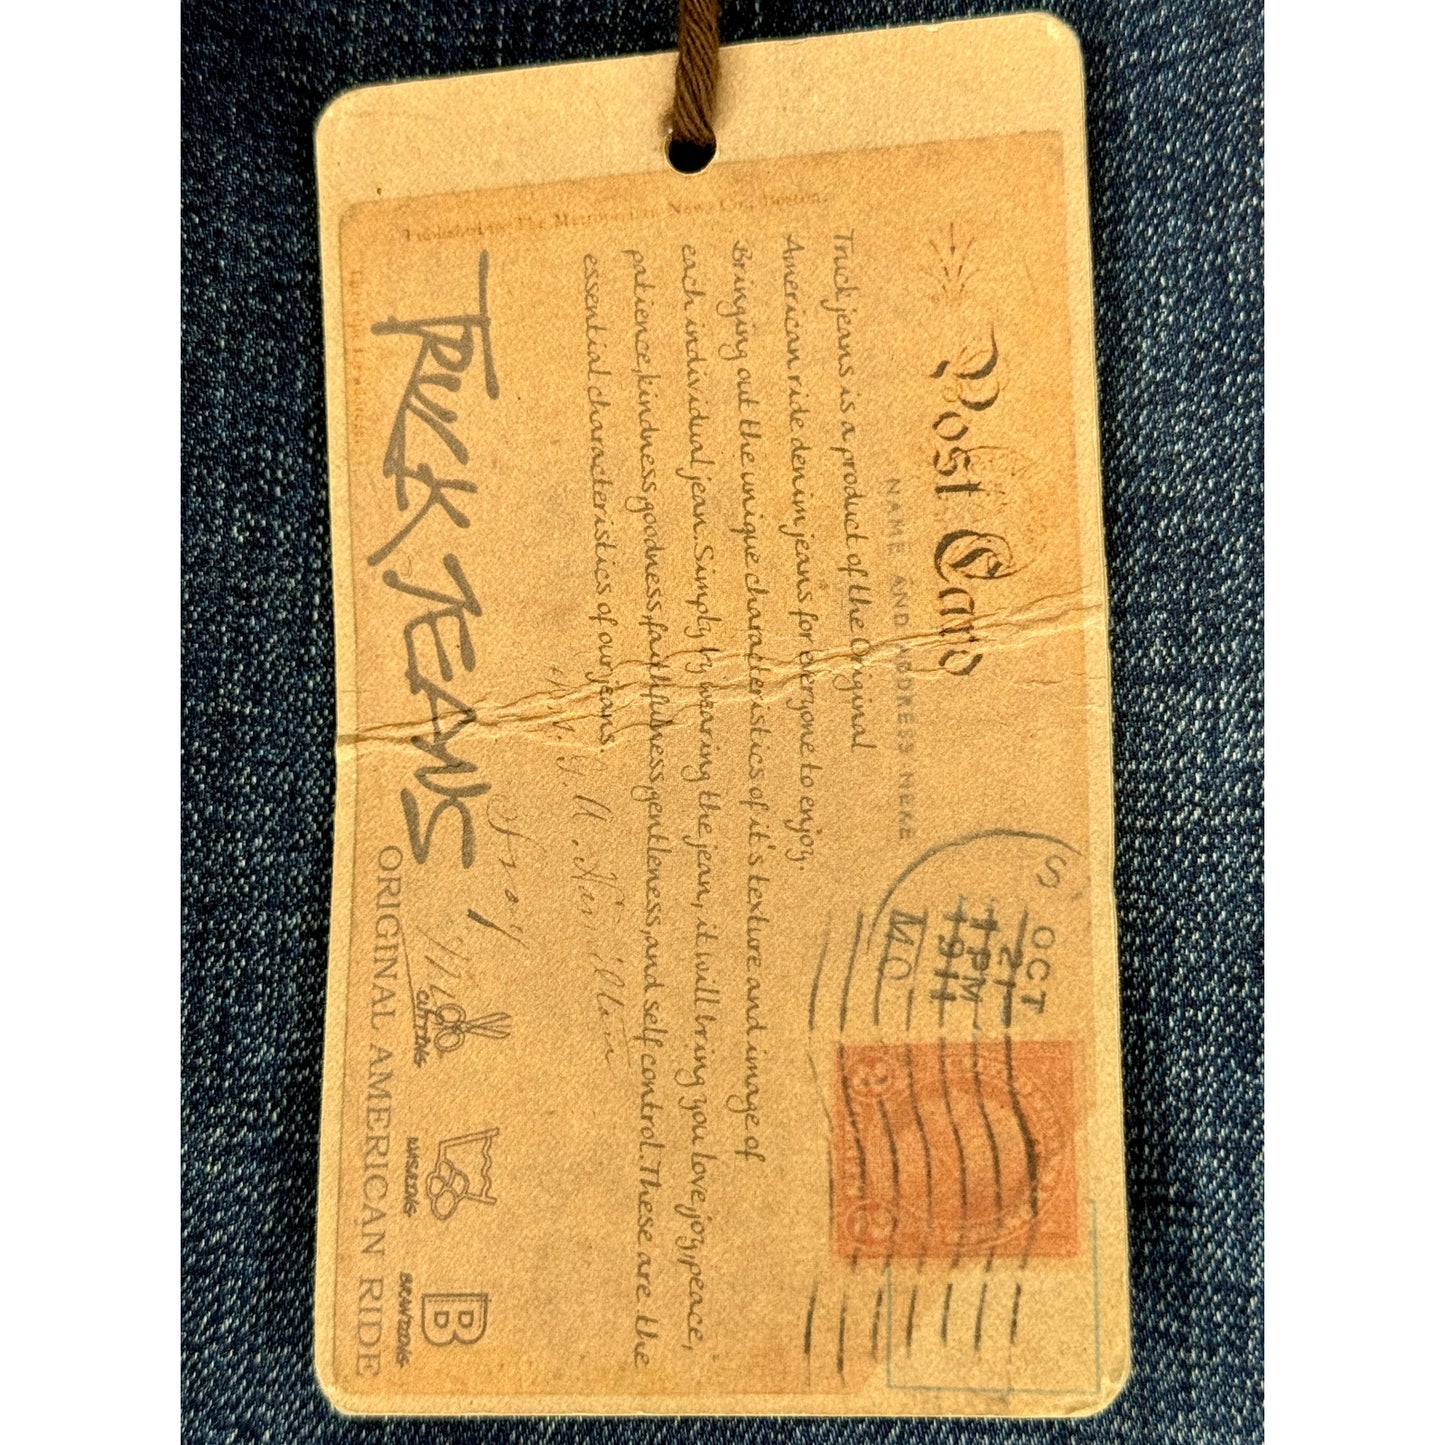 Post Card
NAME AND ADDRESS HERE
Truck jeans is a product of the Original
American ride denim jeans for everyone to enjoy.
Bringing out the unique characteristics of it's texture and image of
each individual jean. Simply by wearing the jean, it will bring you love, joy, peace,
patience, kindness, goodness, faithfulness, gentleness, and self control. These are the
essential characteristics of our jeans.
OCT
21
1 PM
1911
MO
2
2
TRUCK JEANS
ORIGINAL AMERICAN RIDE
CUTTING
WASHING
BRANDING
B